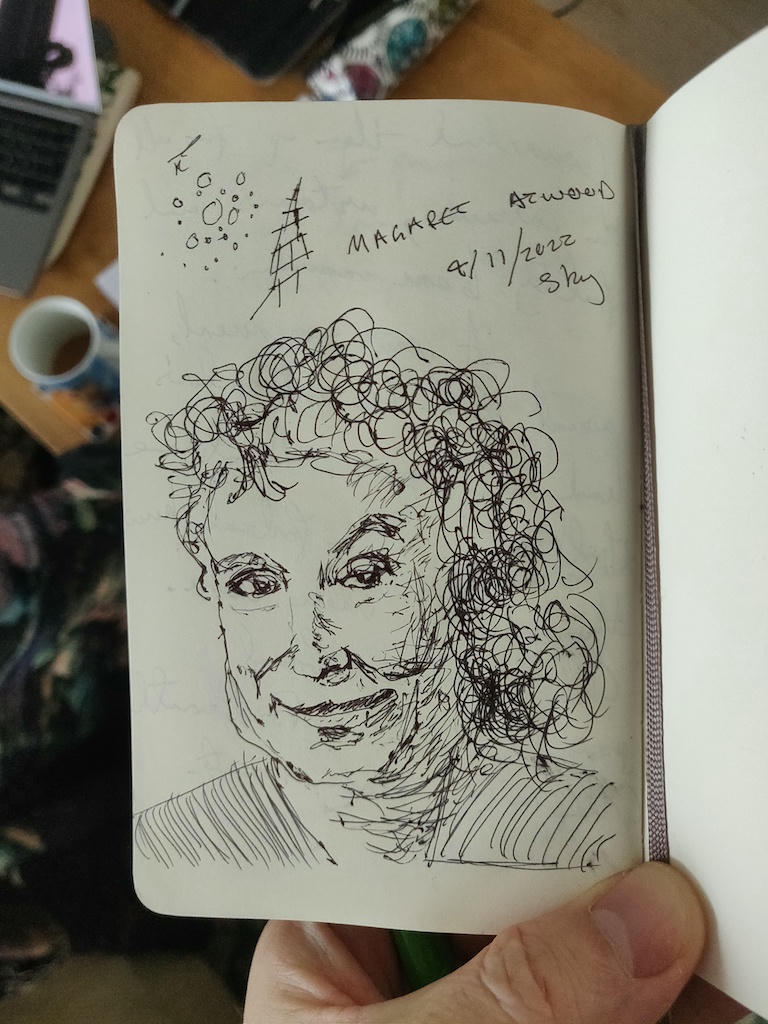 MAGARET ATWOOD
4/11/2022
Sky